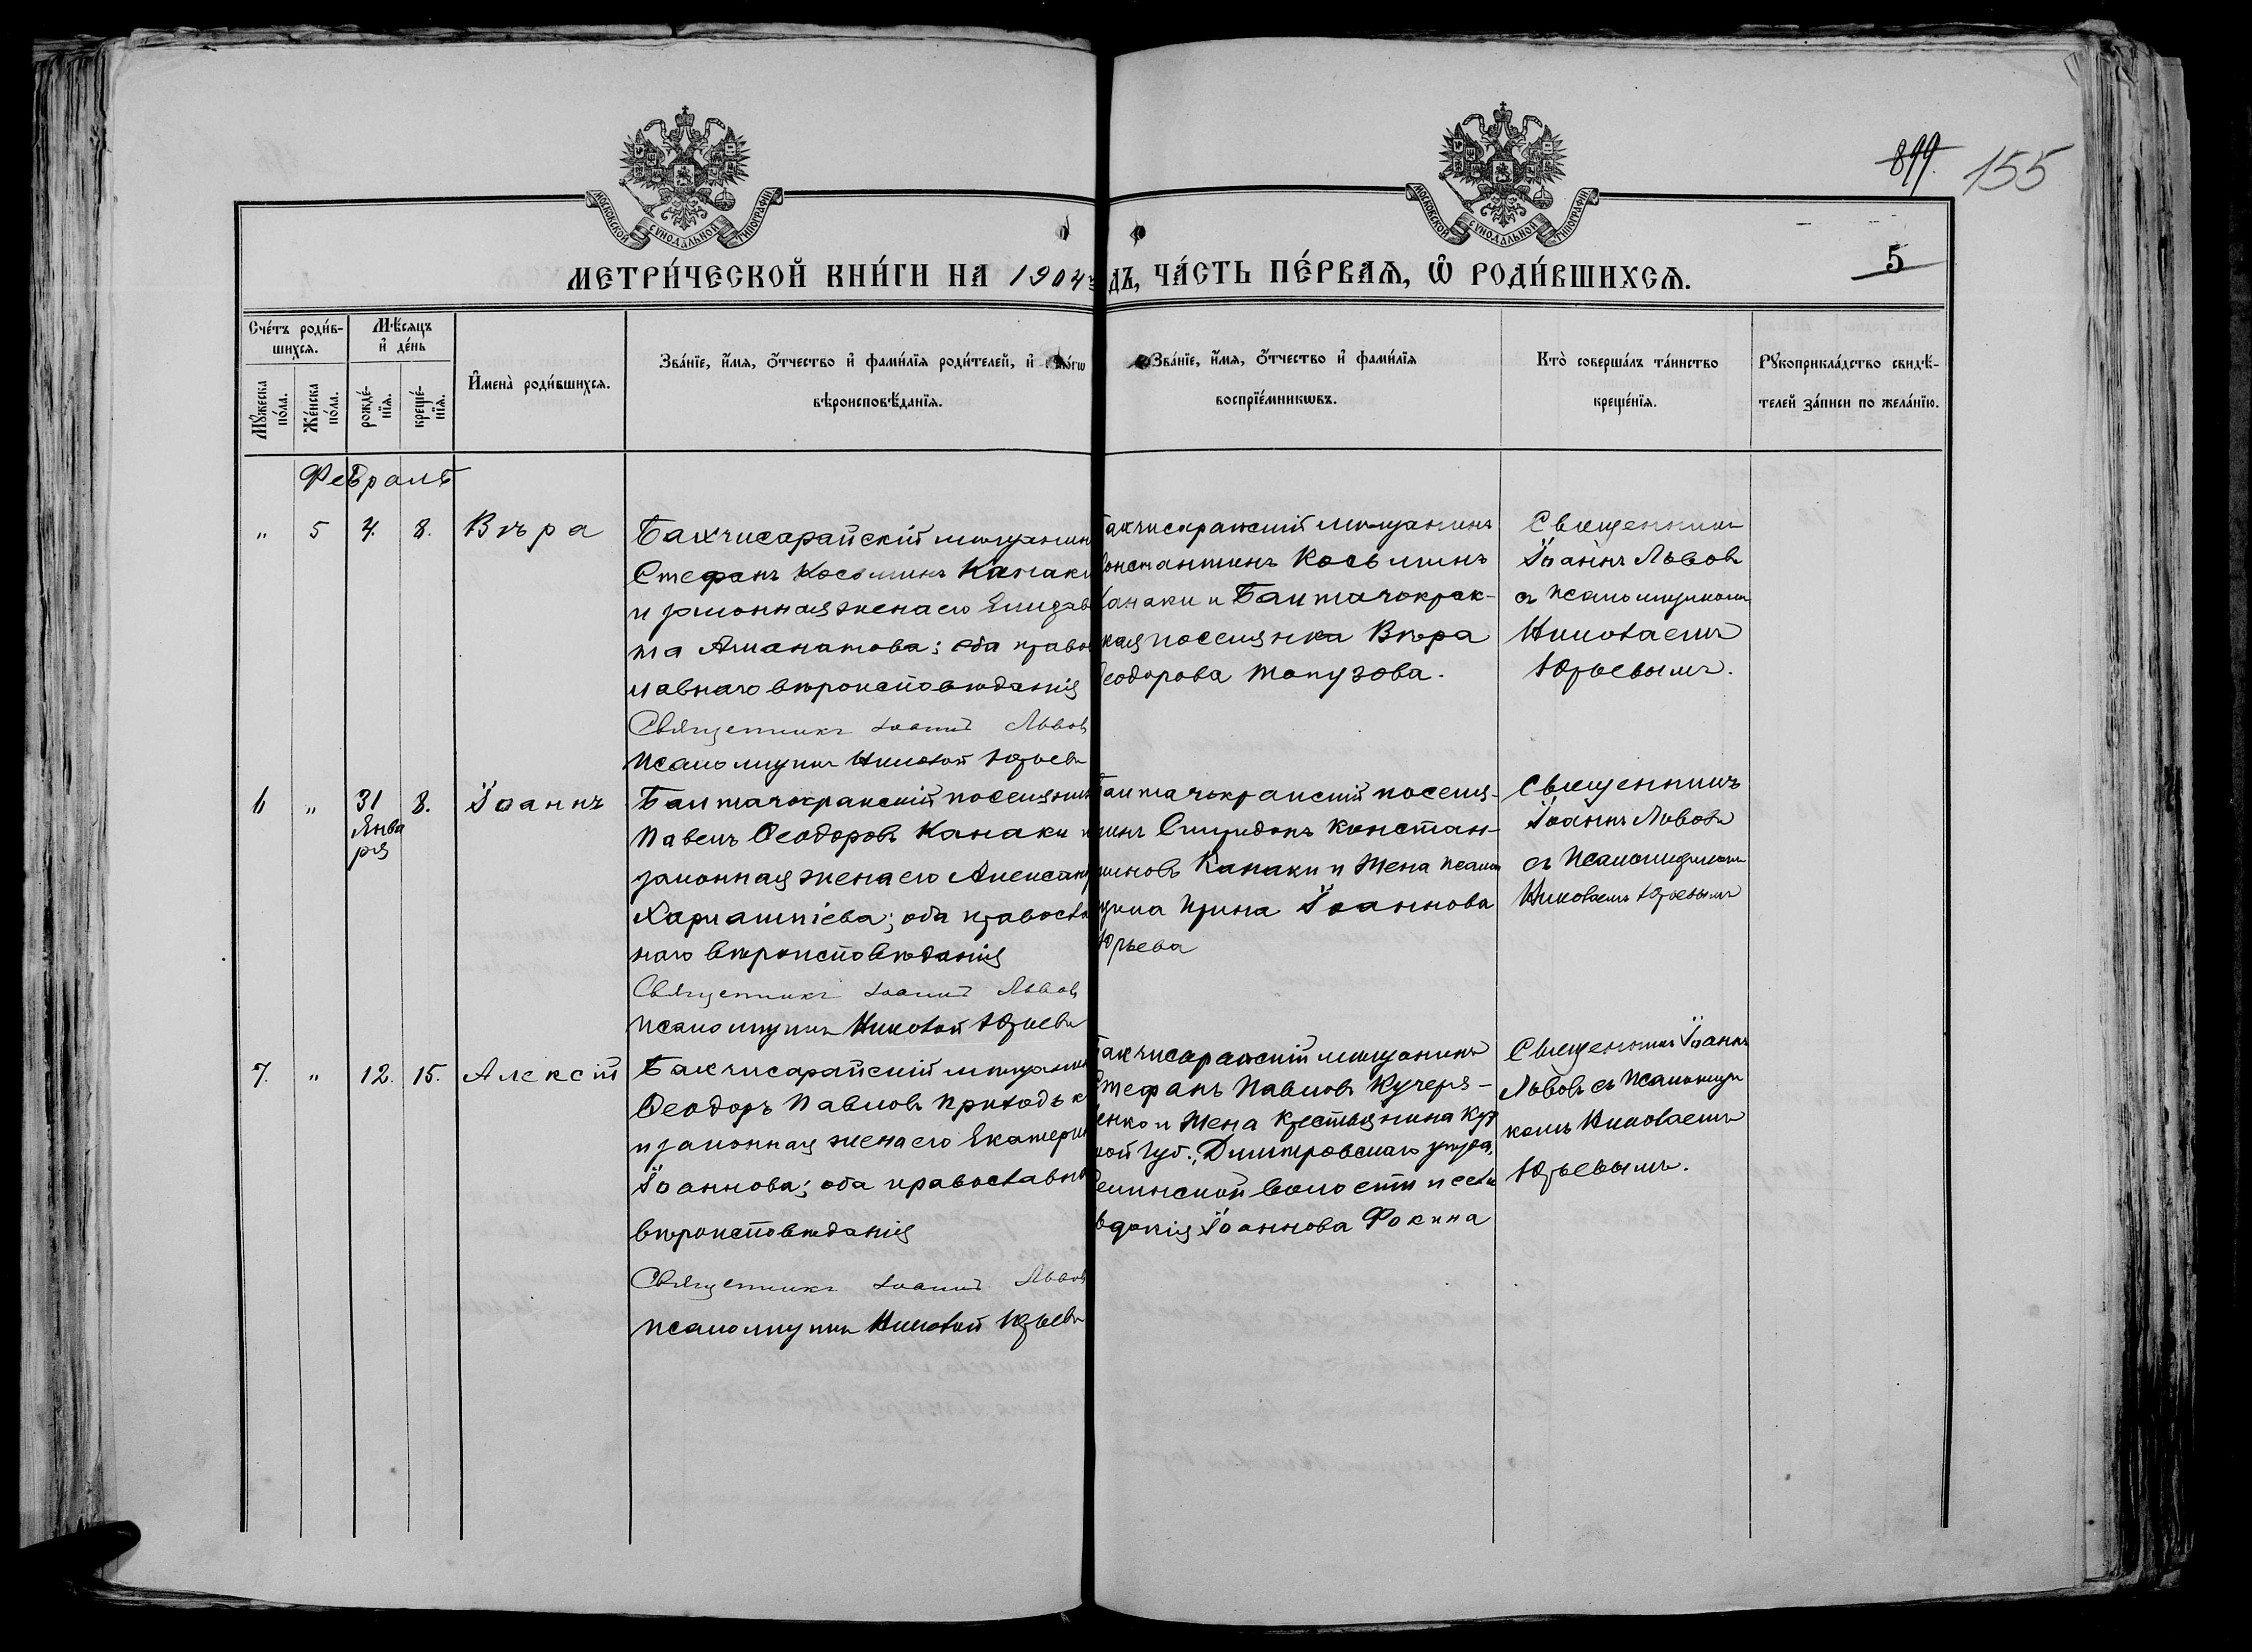 МОСКОВСКОЙ СѴНОДАЛЬНОЙ ТИПОГРАФІИ
МОСКОВСКОЙ СѴНОДАЛЬНОЙ ТИПОГРАФІИ
899. 155
5
МЕТРИ́ЧЕСКОЙ КНИ́ГИ НА 1904
ДЪ, ЧА́СТЬ ПЕ́РВАѦ, Ѡ҆ РОДИ́ВШИХСѦ.
Сче́тъ роди́в-
шихсѧ.
Мꙋ́жеска по́ла.
Же́нска по́ла.
Мѣ́сѧцъ
и҆ де́нь
рожде́-
нїѧ.
креще́-
нїѧ.
И҆мена̀ роди́вшихсѧ.
Зва́нїе, и҆́мѧ, ѻ҆́тчество и҆ фами́лїѧ роди́телей, и҆
вѣроисповѣ́данїѧ.
Зва́нїе, и҆́мѧ, ѻ҆́тчество и҆ фами́лїѧ
воспрїе́мникѡвъ.
Кто̀ соверша́лъ та́инство
креще́нїѧ.
Рꙋкоприкла́дство свидѣ́-
телей за́писи по жела́нїю.
Февраль
" 5 4. 8. Вѣра
Бахчисарайскій мѣщанин
Стефанъ Косьминъ Канаки
и законная жена его Елизаве
та Аманатова; оба право
славнаго вѣроисповѣданія
Священникъ Іоаннъ Львовъ
Псаломщикъ Николай Юрьевъ
ахчисарайскій мѣщанинъ
онстантинъ Косьминъ
анаки и Балтачокрак-
кая поселянка Вѣра
еодорова Топузова.
Священникъ
Іоаннъ Львовъ
съ Псаломщикомъ
Николаемъ
Юрьевымъ.
6 " 31 Января 8. Іоаннъ
Балтачокракскій поселянин
Павелъ Ѳеодоровъ Канаки и
законная жена его Александ
Харлампіева; оба православ
наго вѣроисповѣданія
Священникъ Іоаннъ Львовъ
Псаломщикъ Николай Юрьевъ
алтачокракскій поселя-
нинъ Спиридонъ Констан-
тиновъ Канаки и жена псалом
щика Ирина Іоаннова
Юрьева
Священникъ
Іоаннъ Львовъ
съ Псаломщикомъ
Николаемъ Юрьевымъ
7. " 12. 15. Алексій
Бахчисарайскій мѣщанин
Ѳеодоръ Павловъ Приходьк
и законная жена его Екатерин
Іоаннова; оба православн
вѣроисповѣданія
Священникъ Іоаннъ Львовъ
Псаломщикъ Николай Юрьевъ
ахчисарайскій мѣщанинъ
Стефанъ Павловъ Кучеря-
енко и жена крестьянина Кур
кой губ., Димитровскаго уѣзда,
волости и села
вдокія Іоаннова Фокина
Священникъ Іоаннъ
Львовъ съ Псаломщи
комъ Николаемъ
Юрьевымъ.